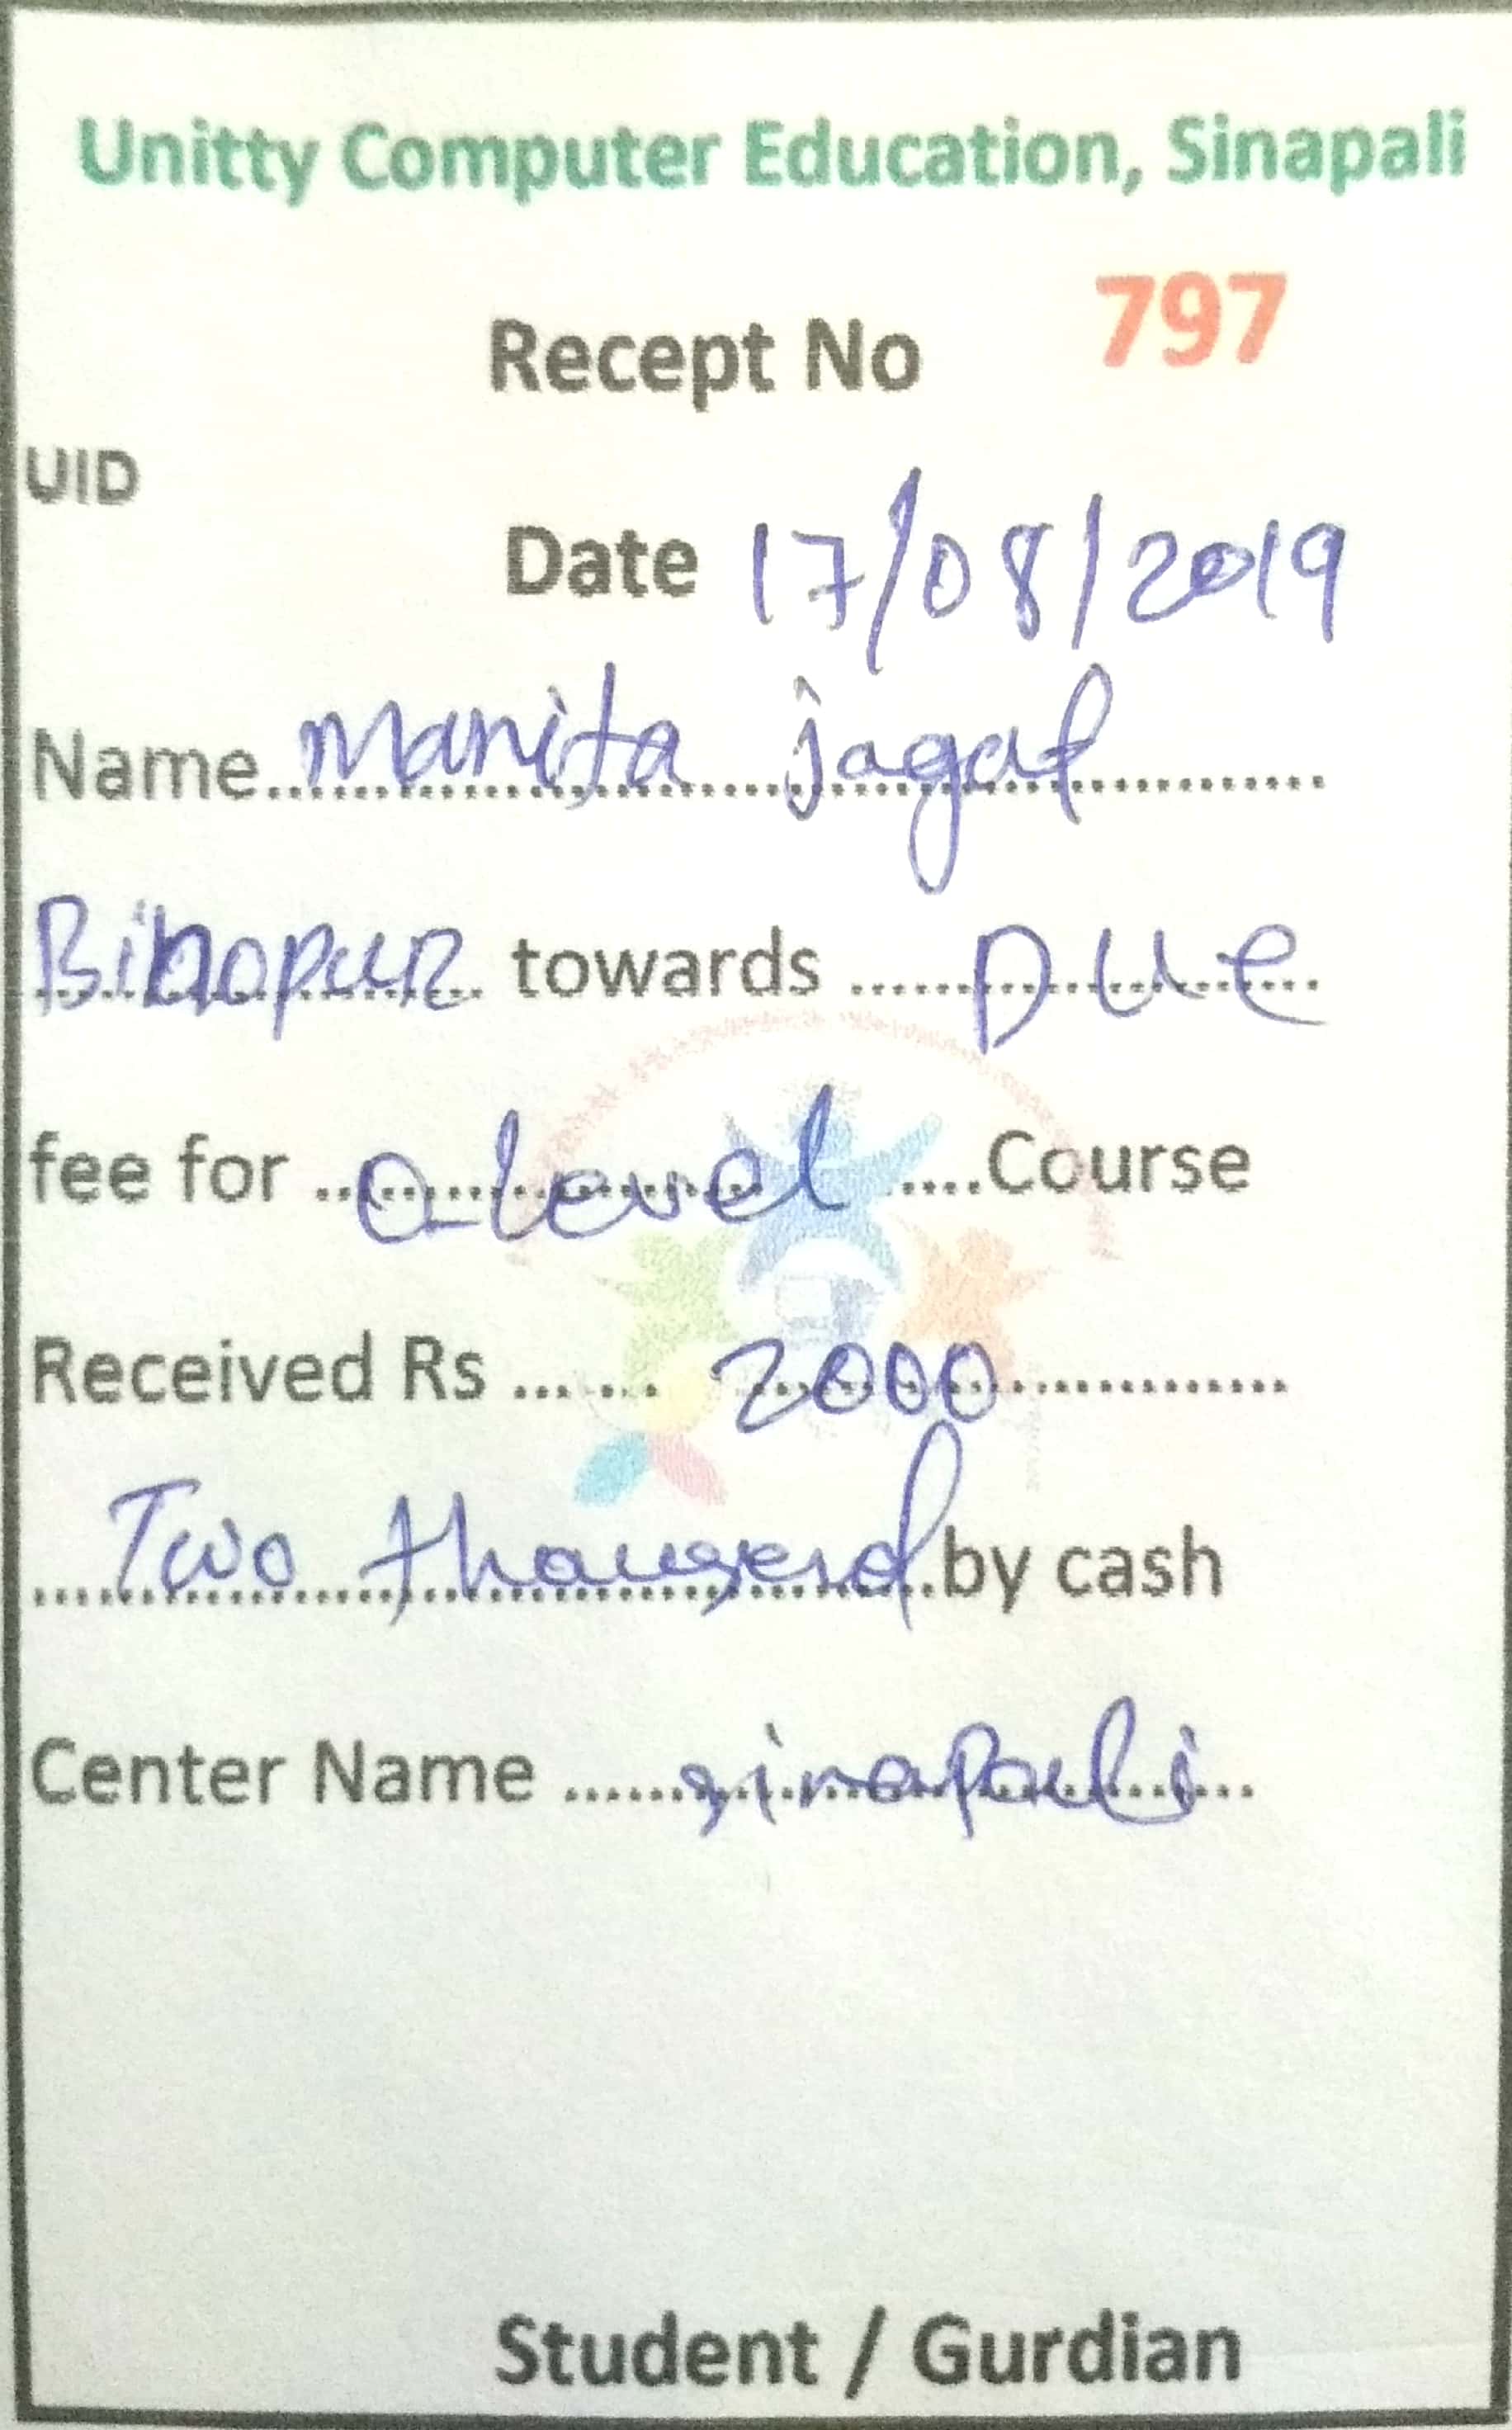 Unitty Computer Education, Sinapali
Recept No 797
UID
Date 17/08/2019
Name manita jagat
towards Due
fee for O-level Course
Received Rs 2000
Two thousend by cash
Center Name sinapali
Student / Gurdian